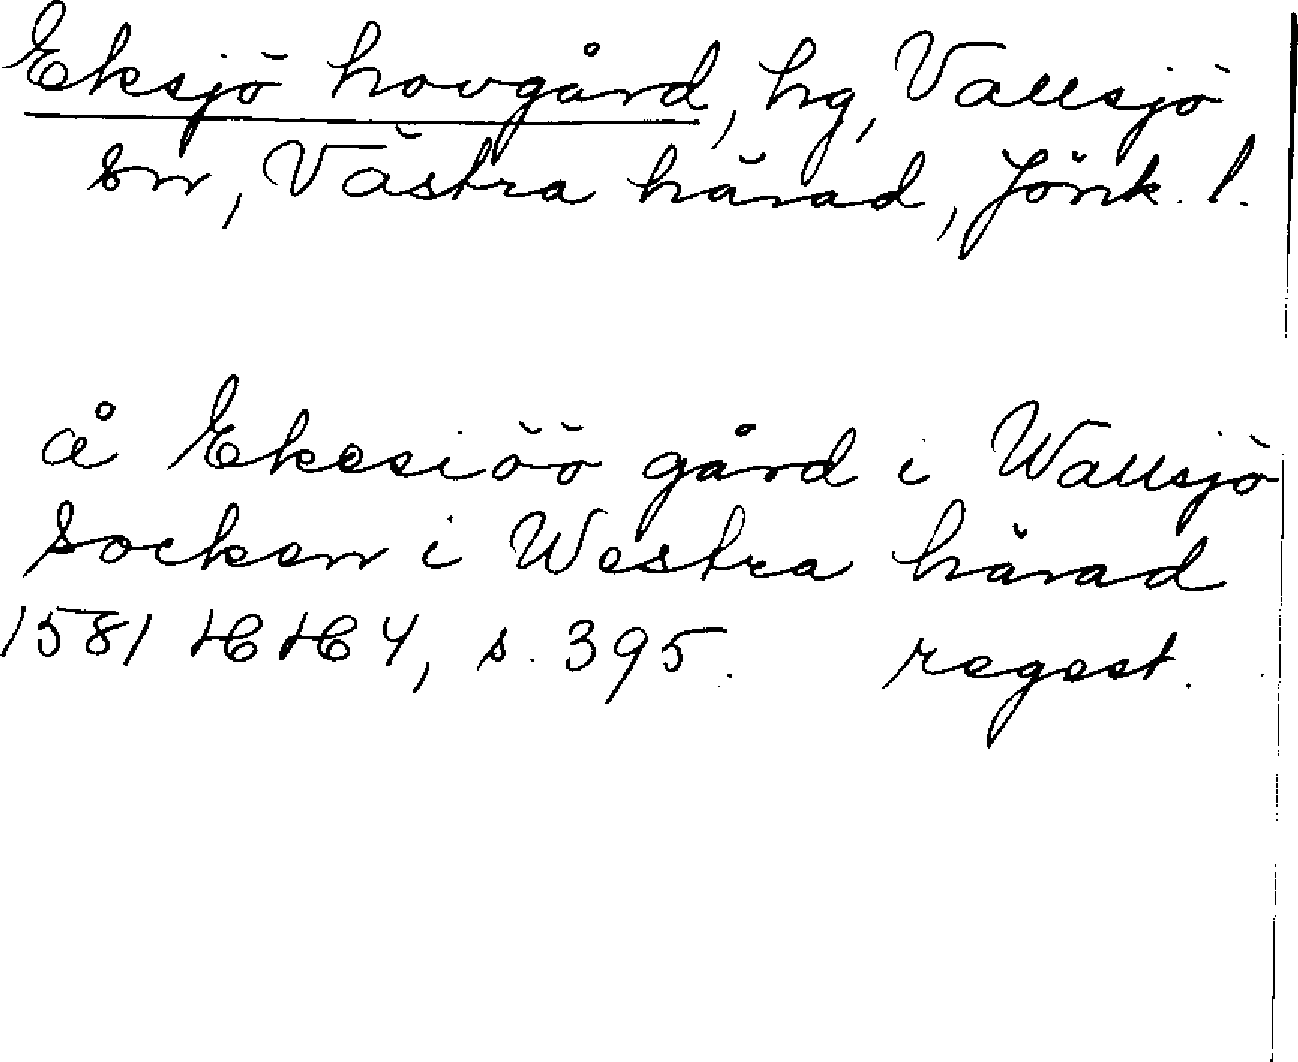 Eksjö hovgård, hg, Vallsjö
sn, Västra härad, Jönk. l.
å Ekesiöö gård i Wallsjö
socken i Westra härad
1581 HH 4, s. 395. regest.